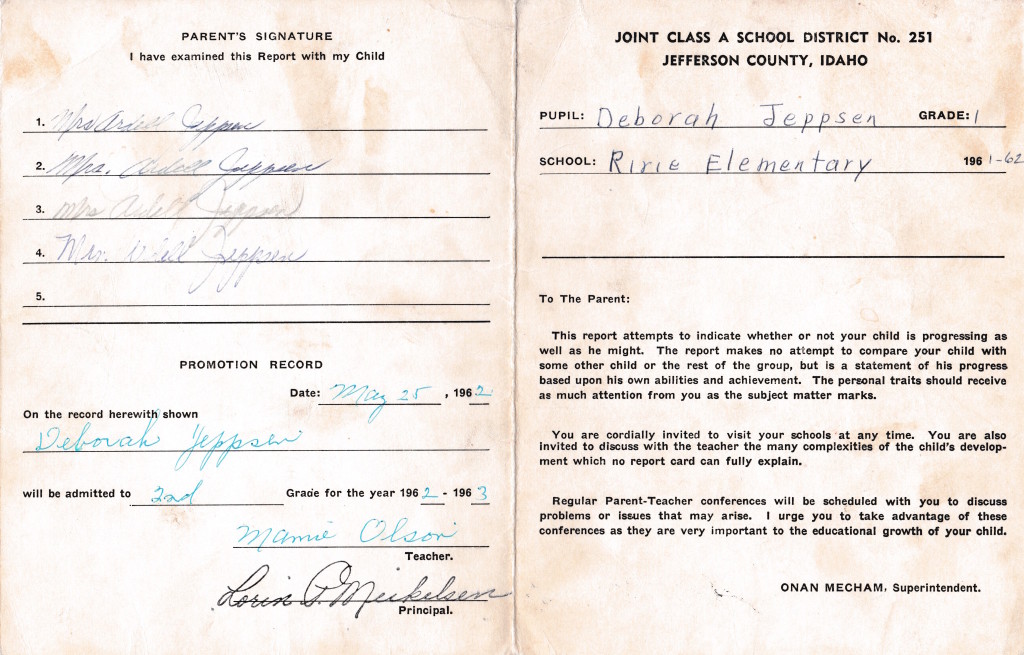 PARENT'S SIGNATURE
I have examined this Report with my Child
1. Mrs Ardell Jeppsen
2. Mrs. Ardell Jeppsen
3. Mrs Ardell Jeppsen
4. Mrs. Ardell Jeppsen
5.
PROMOTION RECORD
Date: May 25, 1962
On the record herewith shown
Deborah Jeppsen
will be admitted to 2nd Grade for the year 1962 - 1963
Mamie Olson
Teacher.
Lorin P. Meikelsen
Principal.
JOINT CLASS A SCHOOL DISTRICT No. 251
JEFFERSON COUNTY, IDAHO
PUPIL: Deborah Jeppsen GRADE: 1
SCHOOL: Ririe Elementary 1961-62
To The Parent:
This report attempts to indicate whether or not your child is progressing as
well as he might. The report makes no attempt to compare your child with
some other child or the rest of the group, but is a statement of his progress
based upon his own abilities and achievement. The personal traits should receive
as much attention from you as the subject matter marks.
You are cordially invited to visit your schools at any time. You are also
invited to discuss with the teacher the many complexities of the child's develop-
ment which no report card can fully explain.
Regular Parent-Teacher conferences will be scheduled with you to discuss
problems or issues that may arise. I urge you to take advantage of these
conferences as they are very important to the educational growth of your child.
ONAN MECHAM, Superintendent.